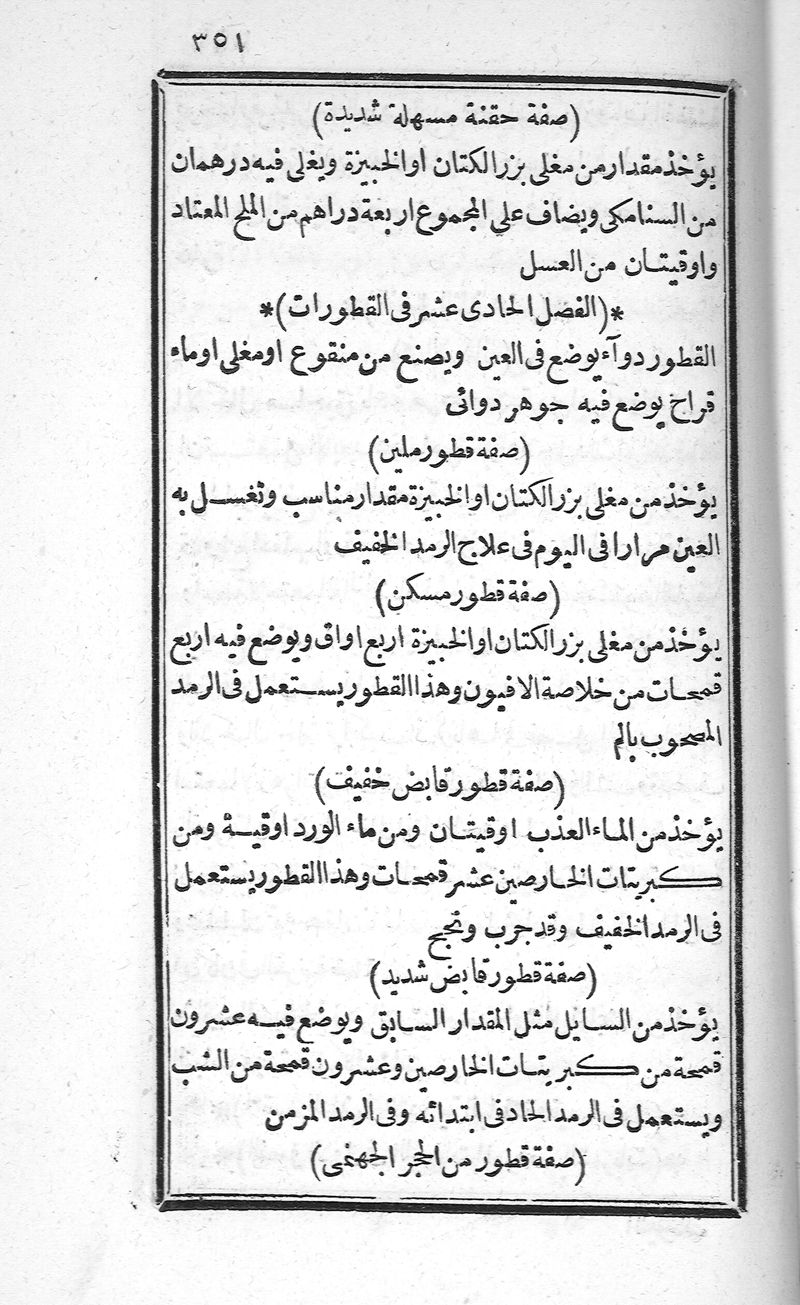 ٣٥١
(صفة حقنة مسهلة شديدة)
يؤخذ مقدار من مغلى بزر الكتان او الخبيزة ويغلى فيه درهمان
من السنامكى ويضاف على المجموع اربعة دراهم من الملح المعتاد
واوقيتان من العسل
*(الفصل الحادى عشر فى القطورات)*
القطور دوآء يوضع فى العين ويصنع من منقوع او مغلى او ماء
قراح يوضع فيه جوهر دوائى
(صفة قطور ملين)
يؤخذ من مغلى بزر الكتان او الخبيزة مقدار مناسب وتغسل به
العين مرارا فى اليوم فى علاج الرمد الخفيف
(صفة قطور مسكن)
يؤخذ من مغلى بزر الكتان او الخبيزة اربع اواق ويوضع فيه اربع
قمحات من خلاصة الافيون وهذا القطور يستعمل فى الرمد
المصحوب بالم
(صفة قطور قابض خفيف)
يؤخذ من الماء العذب اوقيتان ومن ماء الورد اوقية ومن
كبريتات الخارصين عشر قمحات وهذا القطور يستعمل
فى الرمد الخفيف وقد جرب ونجح
(صفة قطور قابض شديد)
يؤخذ من السايل مثل المقدار السابق ويوضع فيه عشرون
قمحة من كبريتات الخارصين وعشرون قمحة من الشب
ويستعمل فى الرمد الحاد فى ابتدائه وفى الرمد المزمن
(صفة قطور من الحجر الجهنمى)